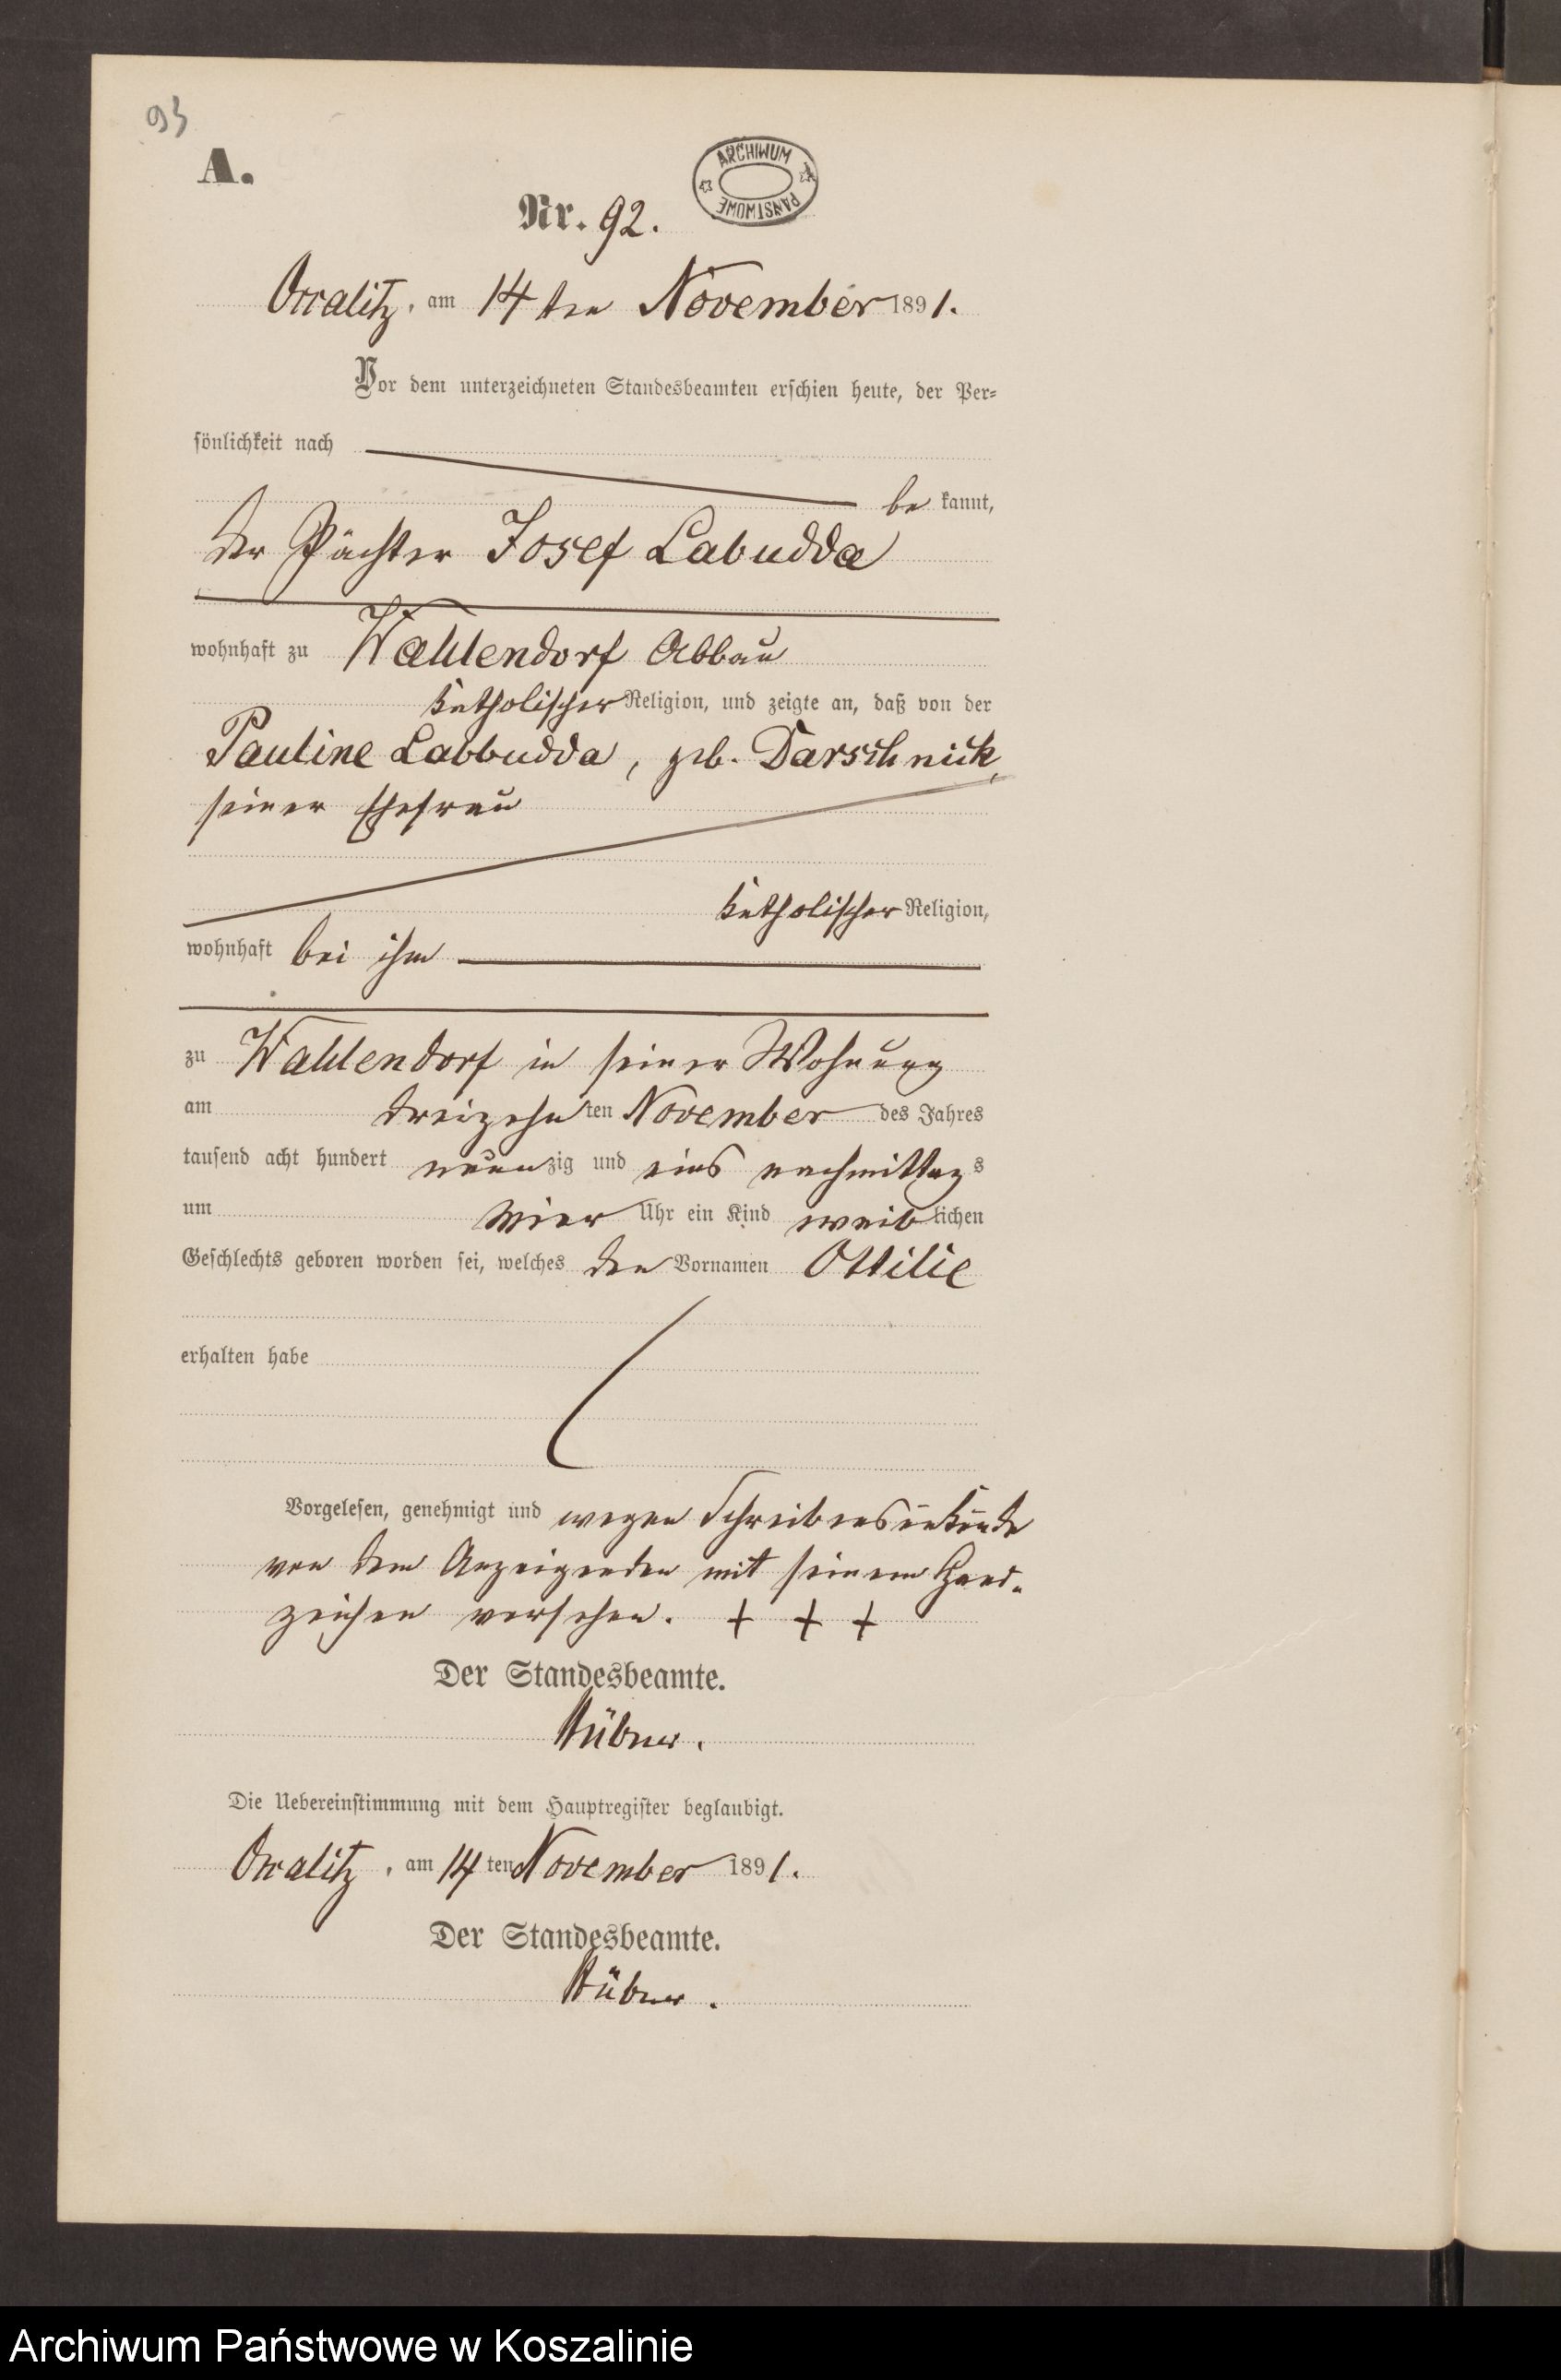 93
A.
ARCHIWUM PAŃSTWOWE
Nr. 92.
Oscalitz, am 14 ten November 1891.
Vor dem unterzeichneten Standesbeamten erschien heute, der Per-
sönlichkeit nach
be kannt,
der Pächter Josef Labudda
wohnhaft zu Wahlendorf Abbau
katholischer Religion, und zeigte an, daß von der
Pauline Labbudda, geb. Darschnick,
seiner Ehefrau
katholischer Religion,
wohnhaft bei ihm
zu Wahlendorf in seiner Wohnung
am dreizehn ten November des Jahres
tausend acht hundert neunzig und eins nachmittags
um vier Uhr ein Kind weiblichen
Geschlechts geboren worden sei, welches den Vornamen Ottilie
erhalten habe
Vorgelesen, genehmigt und wegen Schreibensunkunde
von dem Anzeigenden mit seinem Hand-
zeichen versehen. + + +
Der Standesbeamte.
Hübner.
Die Uebereinstimmung mit dem Hauptregister beglaubigt.
Oscalitz, am 14 ten November 1891.
Der Standesbeamte.
Hübner.
Archiwum Państwowe w Koszalinie